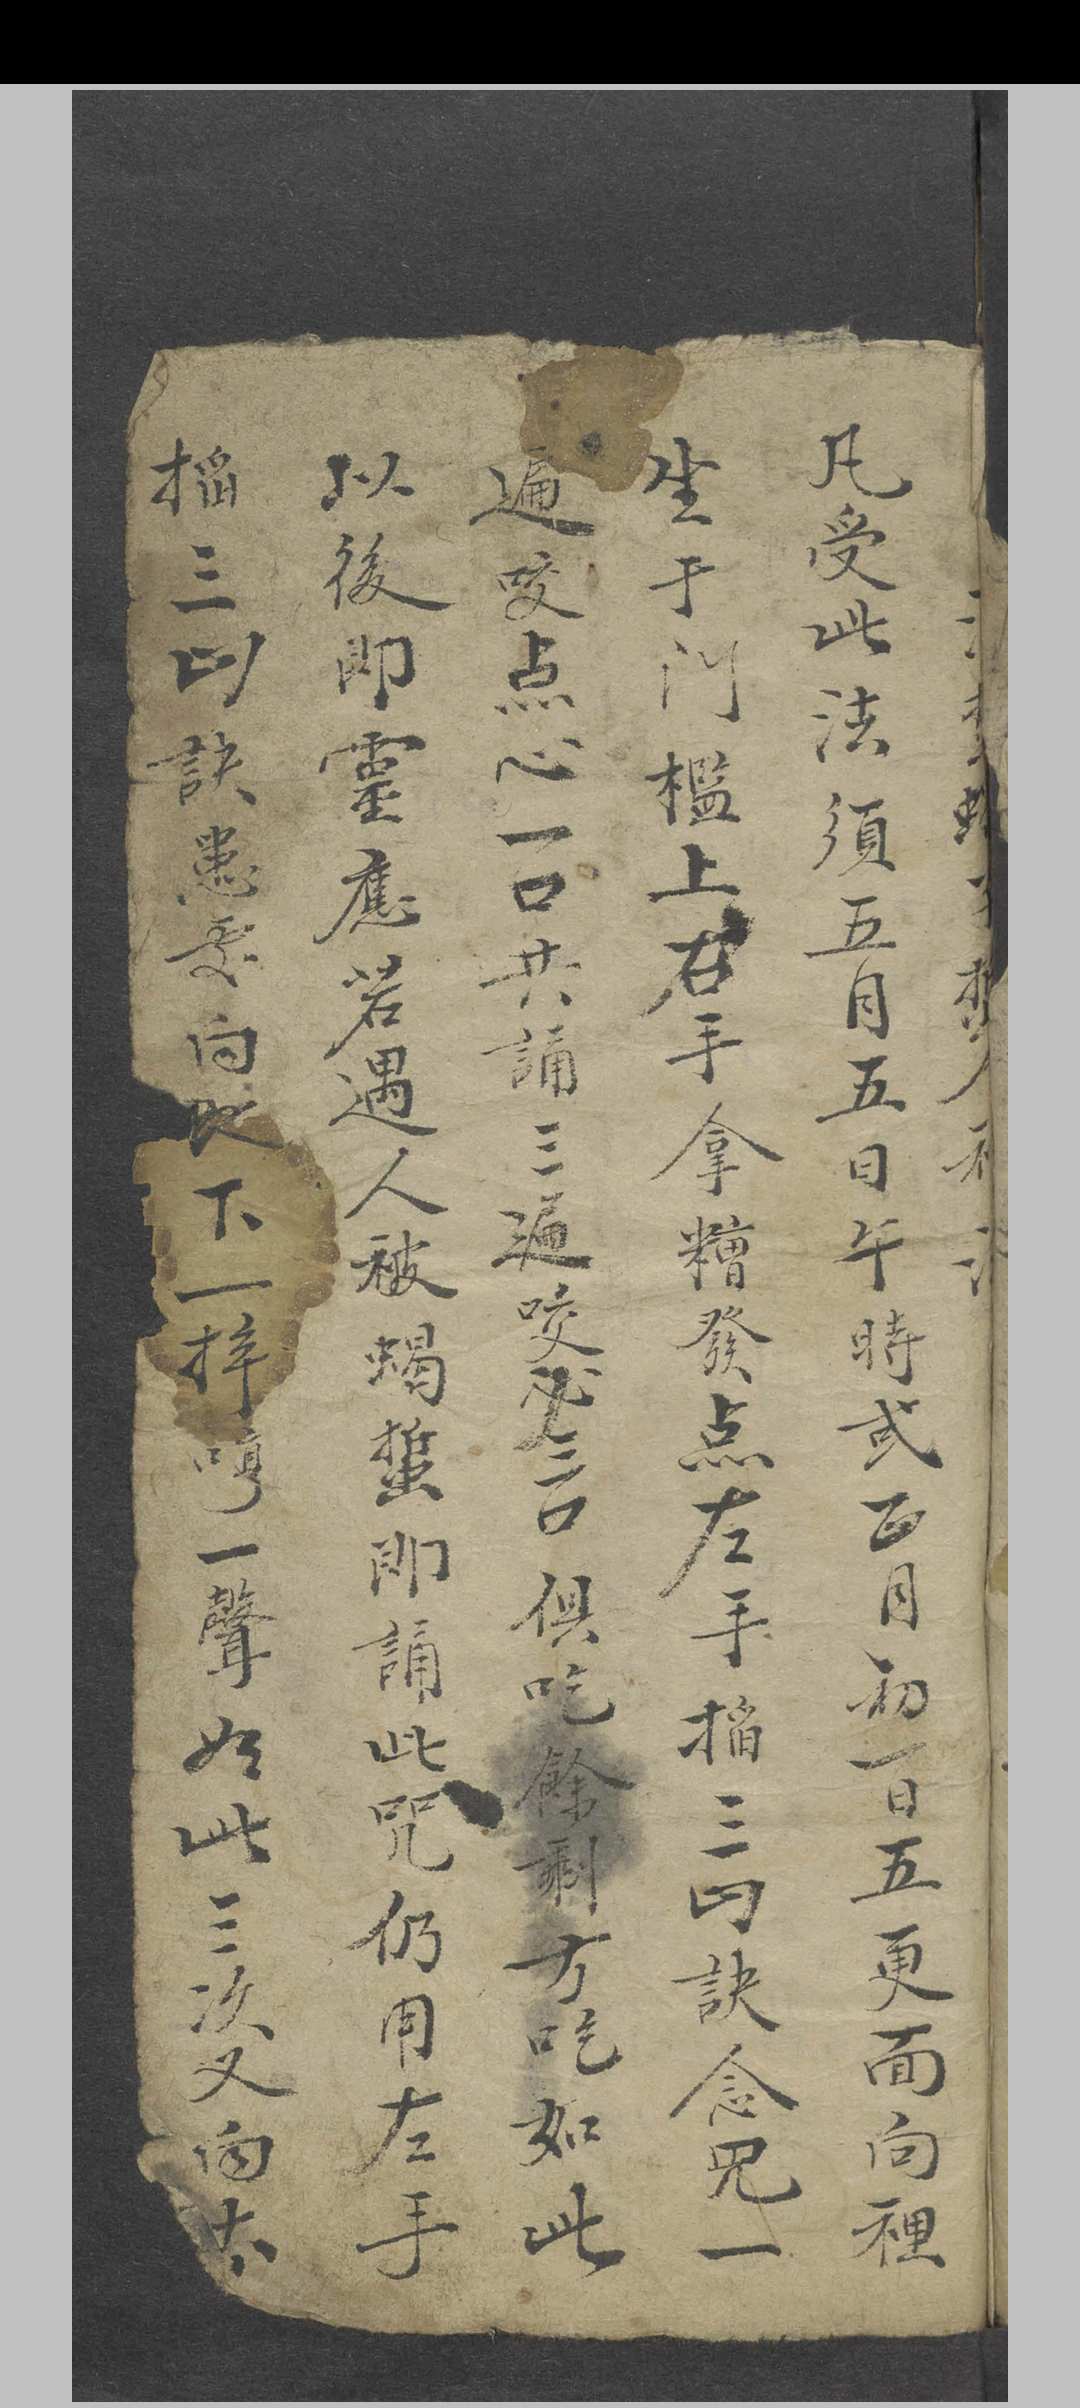 凡受此法須五月五日午時或正月初一日五更面向裡
坐于門檻上右手拿糟發点左手掐三山訣念咒一
遍咬点心一口共誦三遍咬三口俱吃餘剩方吃如此
以後即靈應若遇人被蝎蜇即誦此咒仍用左手
掐三山訣患處向地下一捽哼一聲如此三次又向太